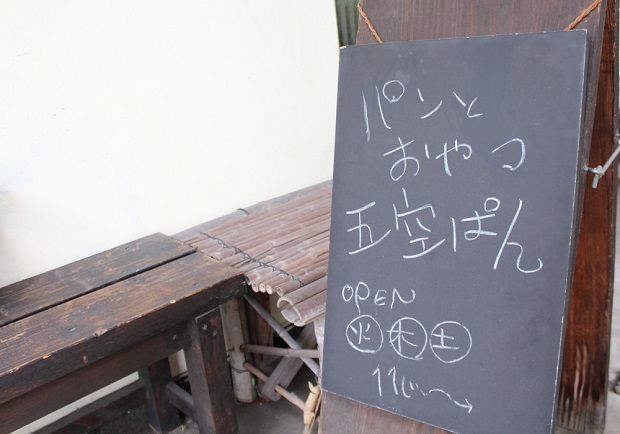 パンと
おやつ
五空ぱん
OPEN
火木土
11じ〜→